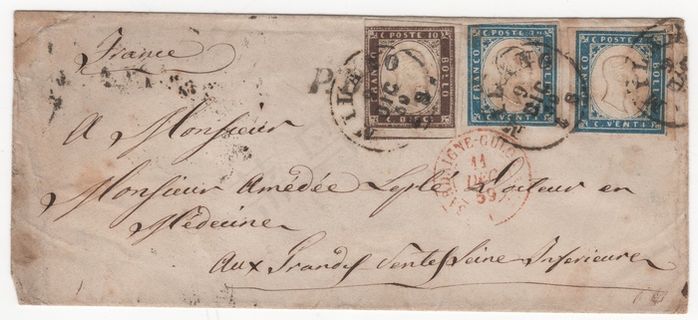 France
C. POSTE 10
FRANCO
BOLLO
C. DIECI
C. POSTE 20
FRANCO
BOLLO
C. VENTI
C. POSTE 20
FRANCO
BOLLO
C. VENTI
MILANO
DIC
59
MILANO
9
DIC
11
DEC
59
A Monsieur
Monsieur Amédée Leplé Docteur en
Médecine
Aux Grandes Ventes Seine Inferieure